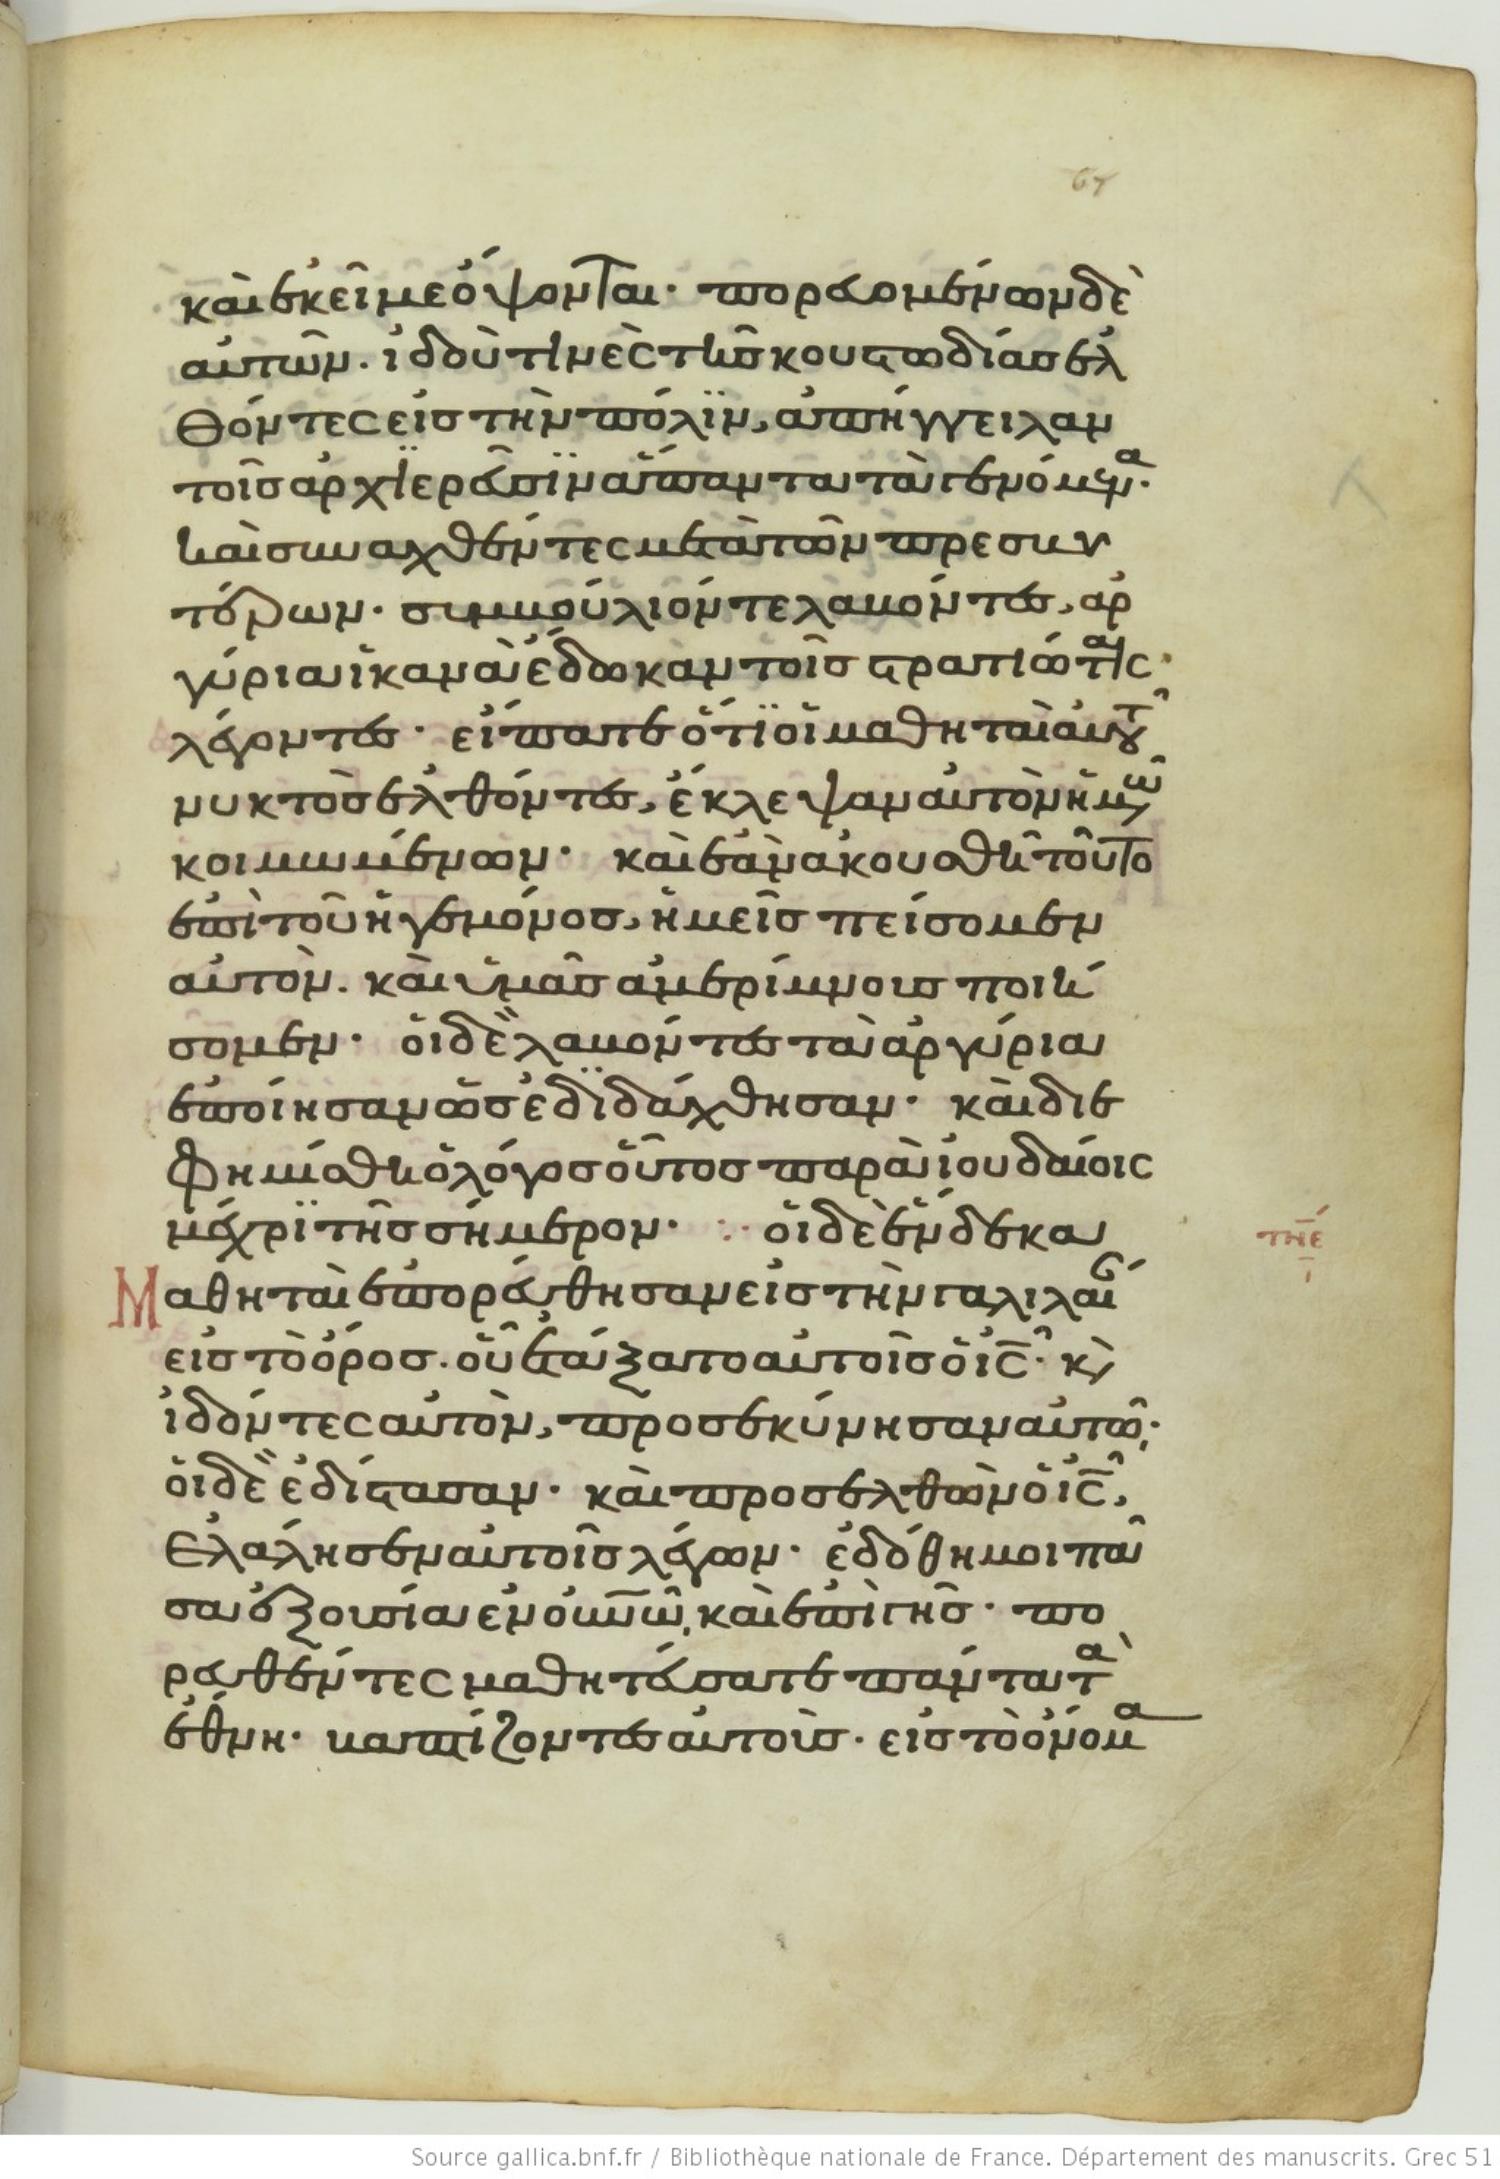 67
καὶ ἐκεῖ με ὄψονται· πορευομένων δὲ
αὐτῶν. ἰδοὺ τινὲς τῆς κουστωδίας ἐλ
θόντες εἰς τὴν πόλϊν, ἀπήγγειλαν
τοῖς ἀρχϊερεῦσϊν ἅπαντα τὰ γενόμενα·
καὶ συναχθέντες μετὰ τῶν πρεσβυ
τέρων· συμβούλιόν τε λαβόντες, ἀρ
γύρια ἱκανὰ ἔδωκαν τοῖς στρατιώταις·
λέγοντες· εἴπατε ὅτϊ οἱ μαθηταὶ αὐτοῦ
νυκτὸς ἐλθόντες, ἔκλεψαν αὐτὸν ἡμῶν
κοιμωμένων· καὶ ἐὰν ἀκουσθῆ τοῦτο
ἐπὶ τοῦ ἡγεμόνος, ἡμεῖς πείσομεν
αὐτὸν. καὶ ὑμᾶς ἀμερίμνους ποιή
σομεν· οἱ δὲ λαβόντες τὰ ἀργύρια
ἐποίησαν ὡς ἐδϊδάχθησαν· καὶ διε
φημίσθη ὁ λόγος οὗτος παρὰ ἰουδαίοις
μέχρϊ τῆς σήμερον· οἱ δὲ ἕνδεκα
Μαθηταὶ ἐπορεύθησαν εἰς τὴν γαλιλαί
εἰς τὸ ὄρος. οὗ ἐτάξατο αὐτοῖς ὁ ις· κὶ
ἰδόντες αὐτὸν, προσεκύνησαν αὐτῶ·
οἱ δὲ ἐδίστασαν· καὶ προσελθὼν ὁ ις,
ἐλάλησεν αὐτοῖς λέγων· ἐδόθη μοι πᾶ
σα ἐξουσία ἐν ουνῶ, καὶ ἐπὶ γῆς· πο
ρευθέντες μαθητεύσατε πάντα τὰ
ἔθνη· βαπτίζοντες αὐτοὺς· εἰς τὸ ὄνομα
Source gallica.bnf.fr / Bibliothèque nationale de France. Département des manuscrits. Grec 51